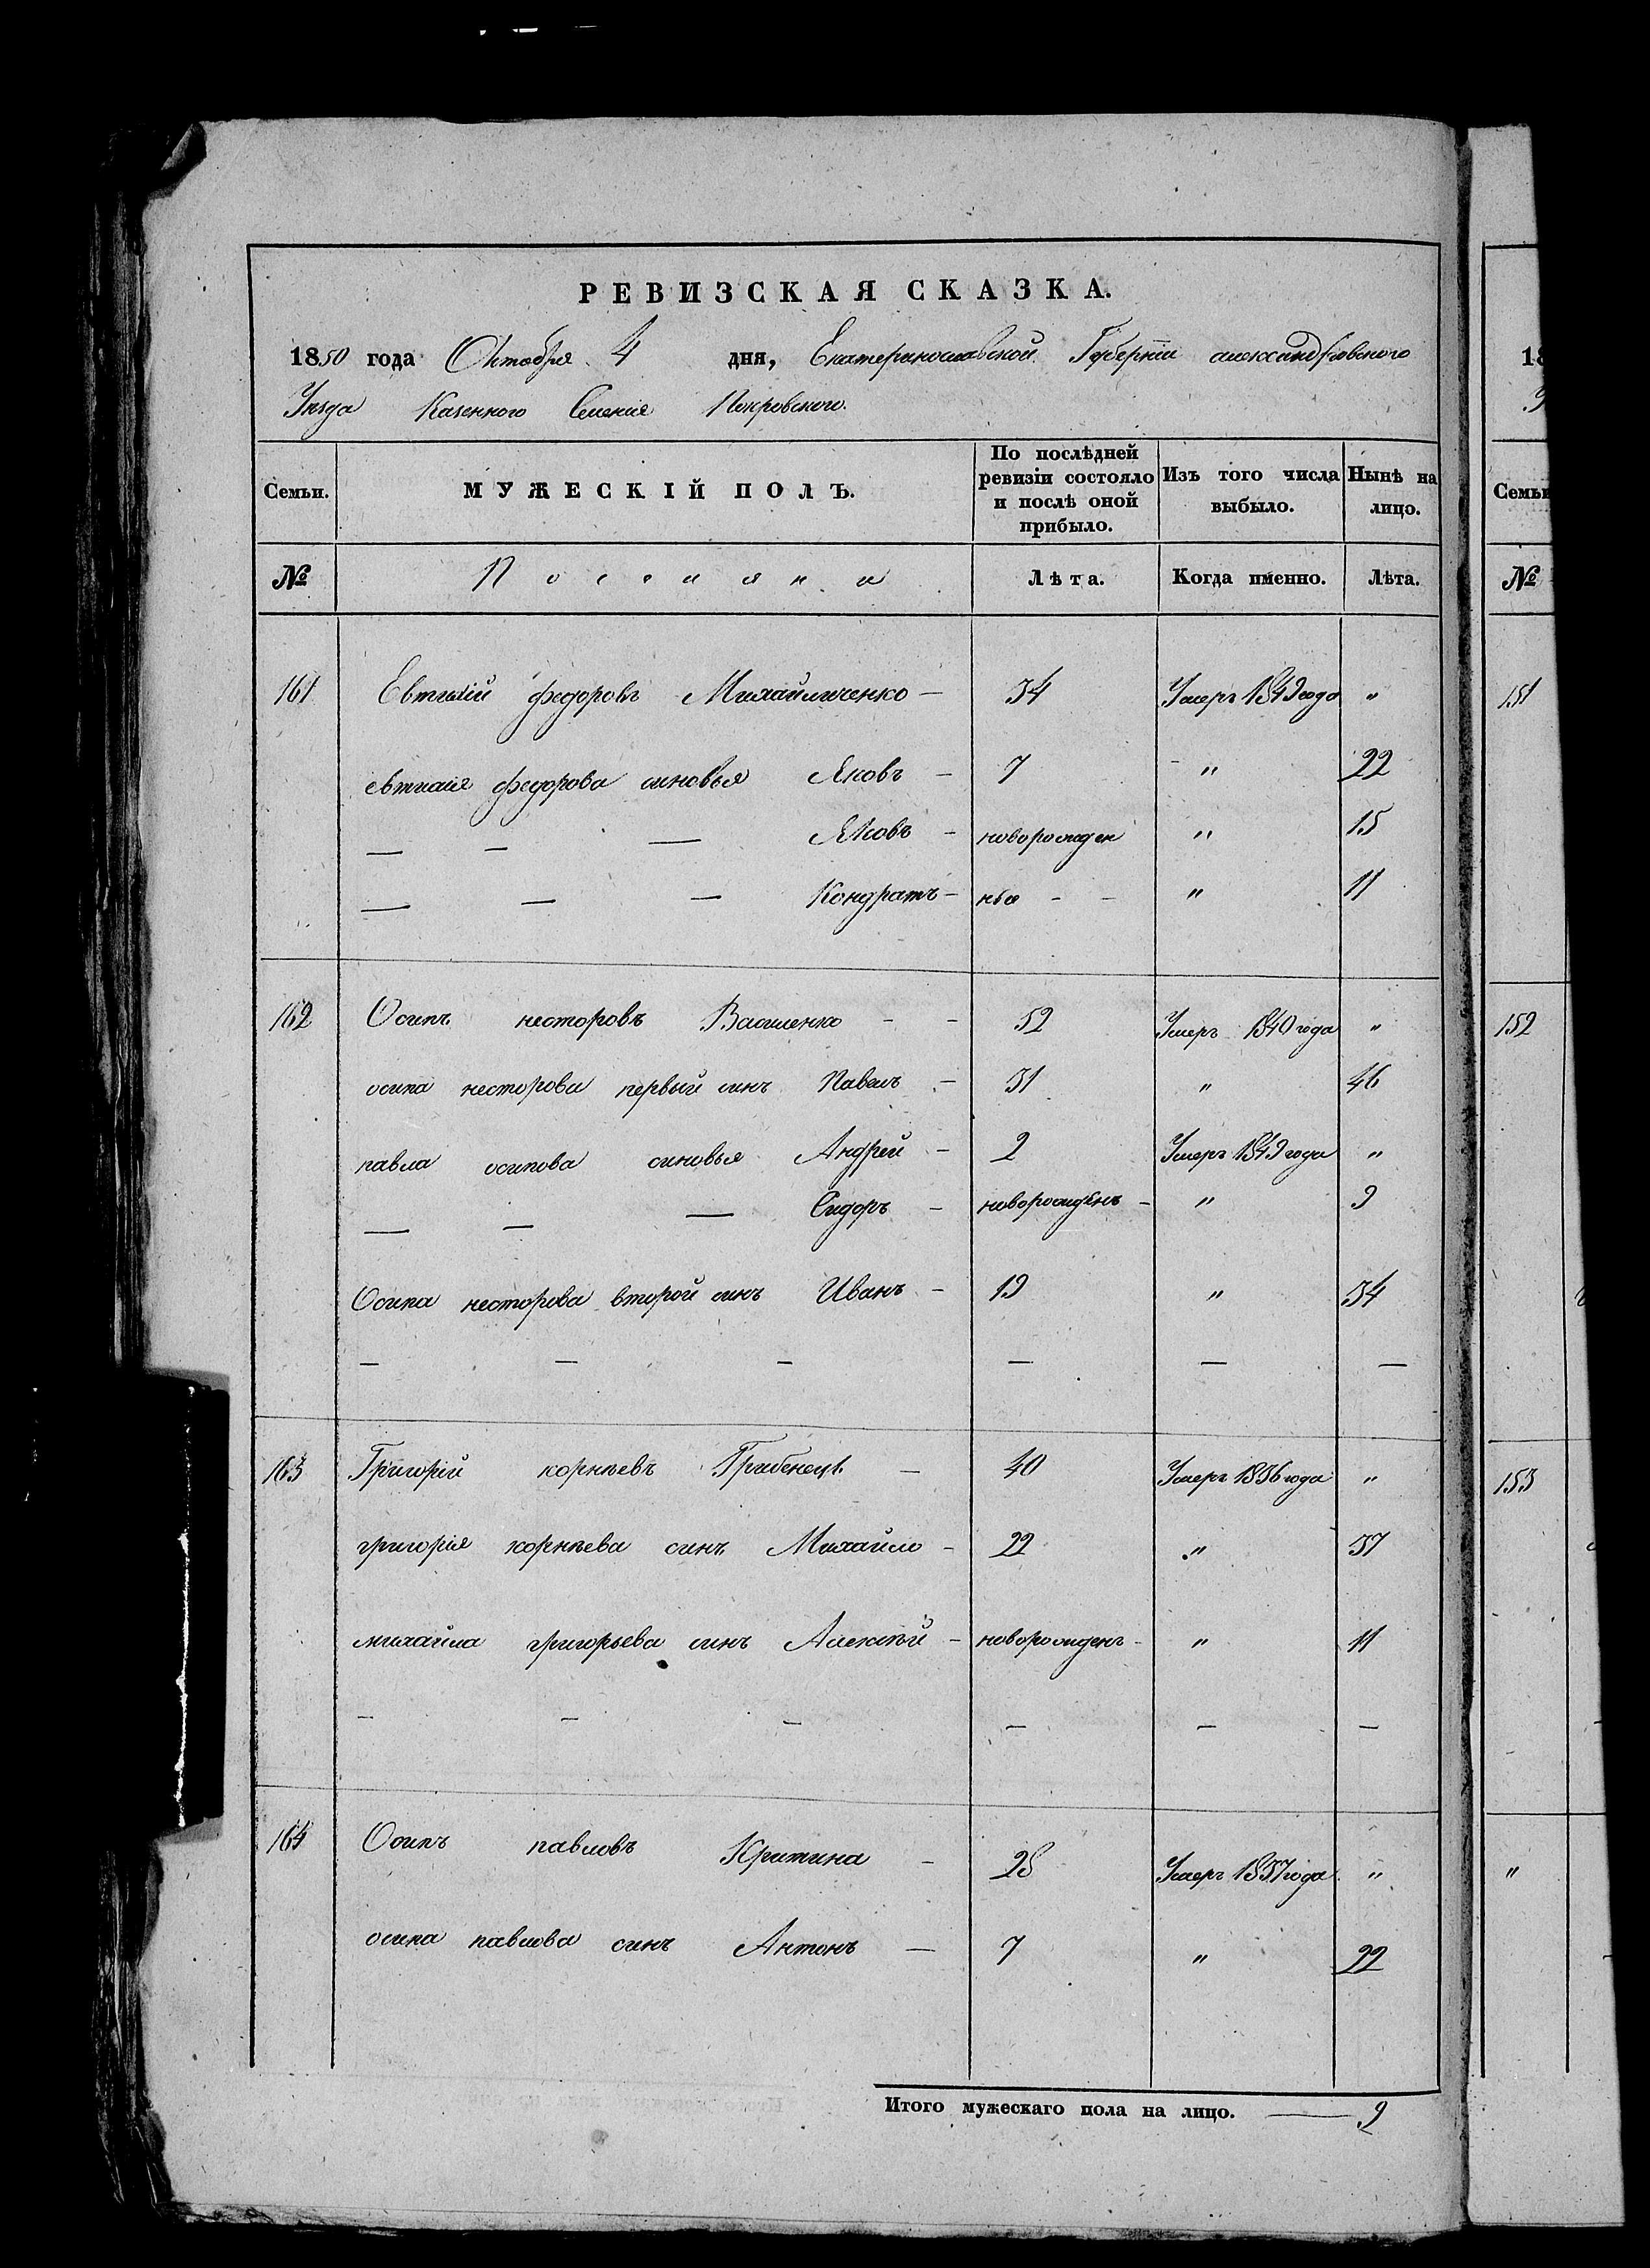 РЕВИЗСКАЯ СКАЗКА.
1850 года Октября 4 дня, Екатеринославской Губерніи александровского
Уезда Казенного Селения Покровского.
Семьи. МУЖЕСКІЙ ПОЛЪ. По послѣдней ревизіи состояло и послѣ оной прибыло. Изъ того числа выбыло. Нынѣ на лицо.
№ Поселяни Лѣта. Когда именно. Лѣта.
161 Евтихій федоровъ Михайличенко — 34 Умеръ 1849 года "
евтихія федорова синовья Яковъ — 7 " 22
— — — Яковъ — новорожден " 15
— — — Кондратъ — ныя - - " 11
162 Осипъ несторовъ Василенко - - 52 Умеръ 1840 года "
осипа несторова первый синъ Павелъ — 31 " 46
павла осипова синовья Андрей — 2 Умеръ 1849 года "
— — — Сидоръ — новорожденъ — " 9
Осипа несторова второй синъ Иванъ — 19 " 34
— — — — — —
163 Григорій корнѣевъ Гребенецъ — 40 Умеръ 1836 года "
григорія корнѣева синъ Михайло — 22 " 37
михайла григорьева синъ Алексѣй — новорожденъ — " 11
— — — — — —
164 Осипъ павловъ Критина — 28 Умеръ 1837 года "
осипа павлова синъ Антонъ — 7 " 22
Итого мужескаго пола на лицо. — 9
18
У
Семьи
№
151
152
153
"